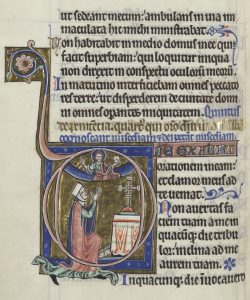 ut sedeant mecum: ambulans in uia im
maculata hic michi ministrabat.
Non habitabit in medio domus mee qui
facit superbiam: qui loquitur iniqua
non direxit in conspectu oculorum meorum
In matutino interficiebam omnes pecca
tores terre: ut disperderem de ciuitate domi
ni omnes operantes iniquitatem. Quintus
de penitencia, quare quis
NE EXAUDI
orationem meam:
et clamor meus ad
te ueniat.
Non auertas fa
ciem tuam a me in
quacumque die tribu
lor: inclina ad me
aurem tuam.
In quacumque die inuocauero